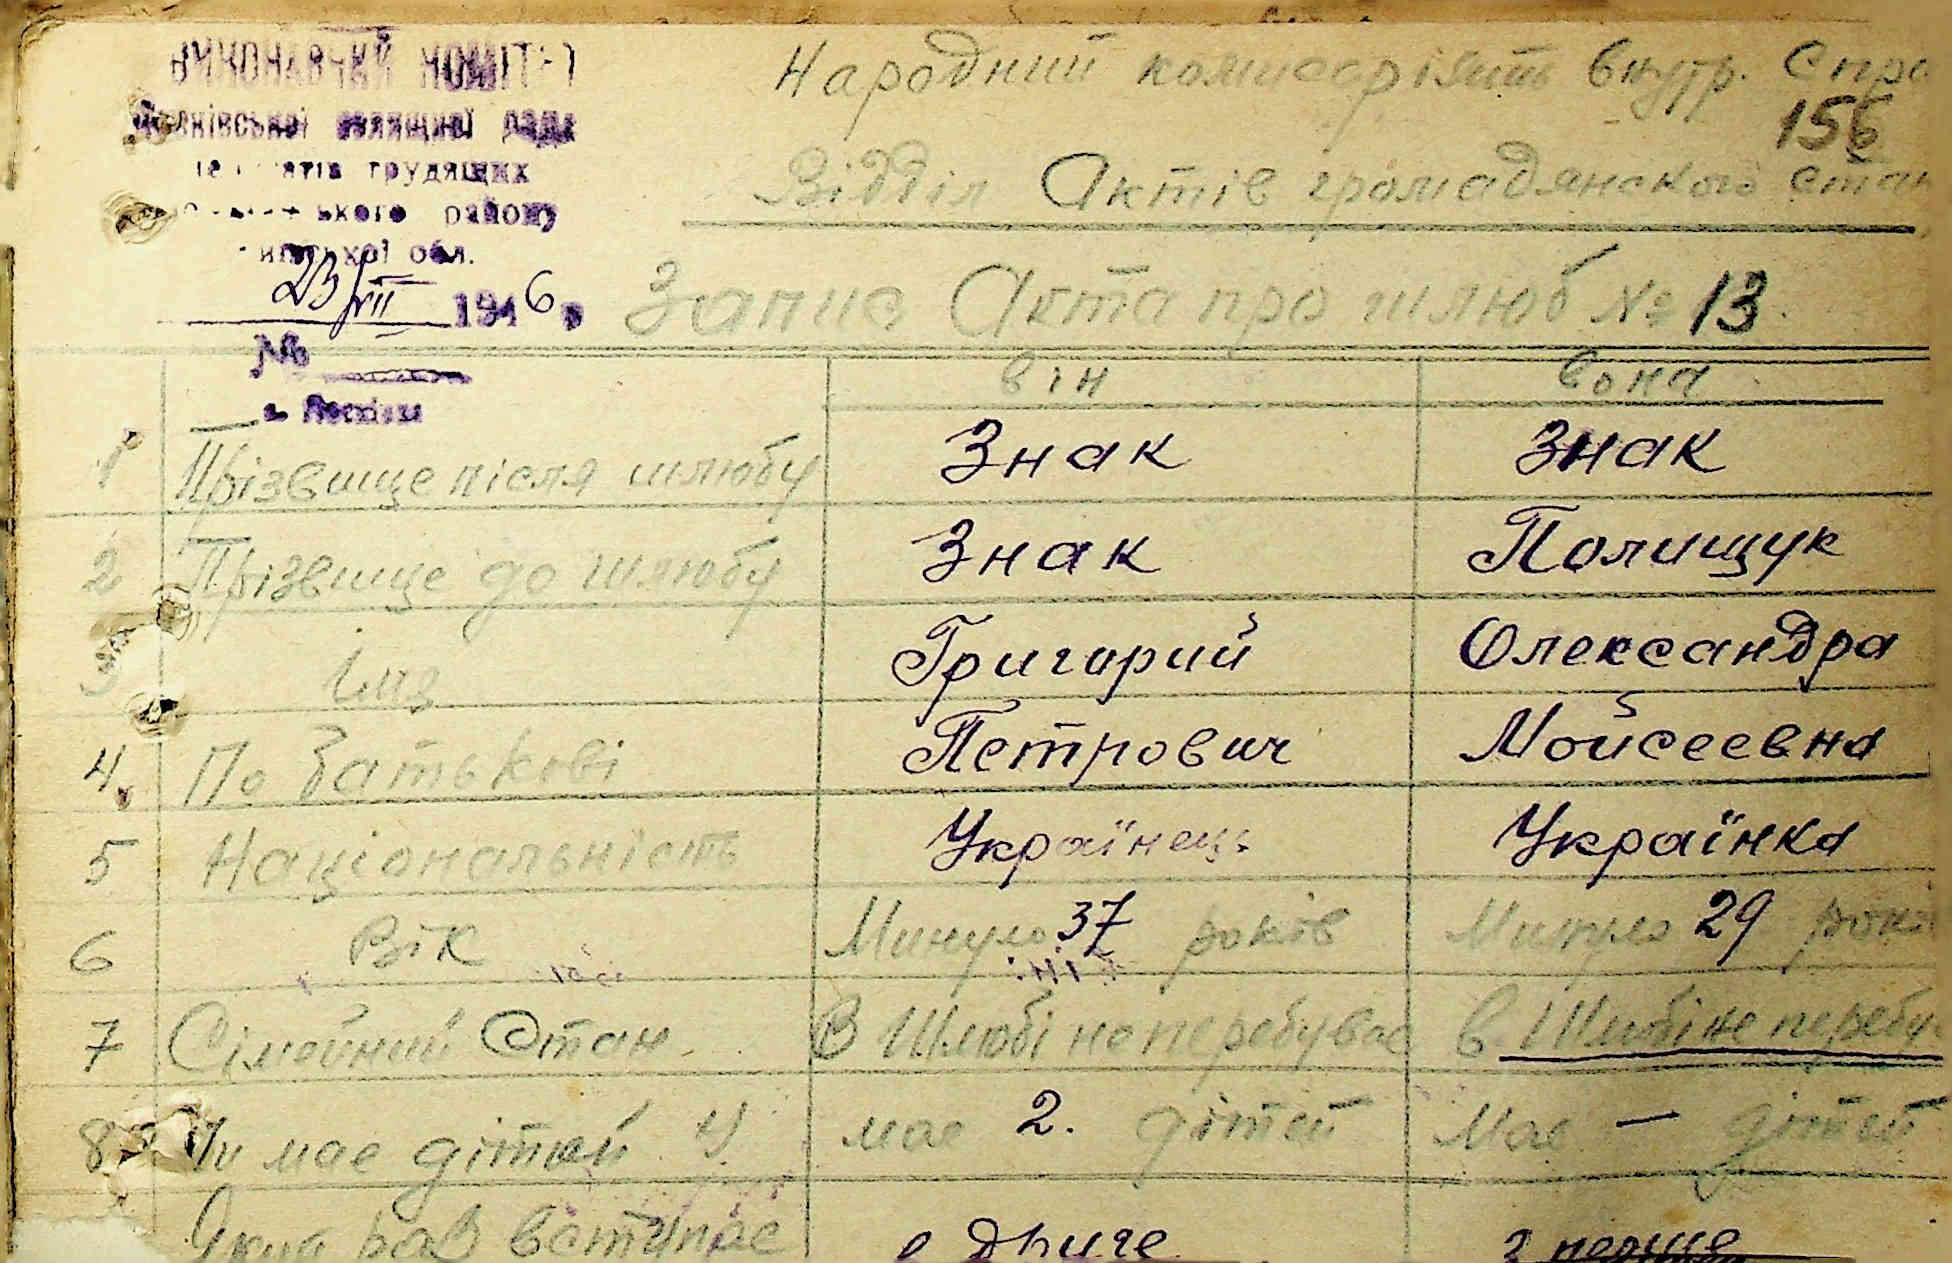 ВИКОНАВЧИЙ КОМІТЕТ
селищної ради
трудящих
району
обл.
23/VII 1946 р
№
Народний комисаріять внутр. Спра
156
Відділ Актів громадянского стан
Запис Акта про шлюб № 13
він вона
1 Прізвище після шлюбу Знак Знак
2 Прізвище до шлюбу Знак Полищук
3 Імя Григорий Олександра
4. По батькові Петрович Мойсеевна
5 Національність Українець Українка
6 Вік Минуло 37 років Минуло 29 рокі
7 Сімейний Стан В Шлюбі не перебуває в Шлюбі не перебу
8 Чи має дітей має 2. дітей Має — дітей
раз вступає в друге з перше